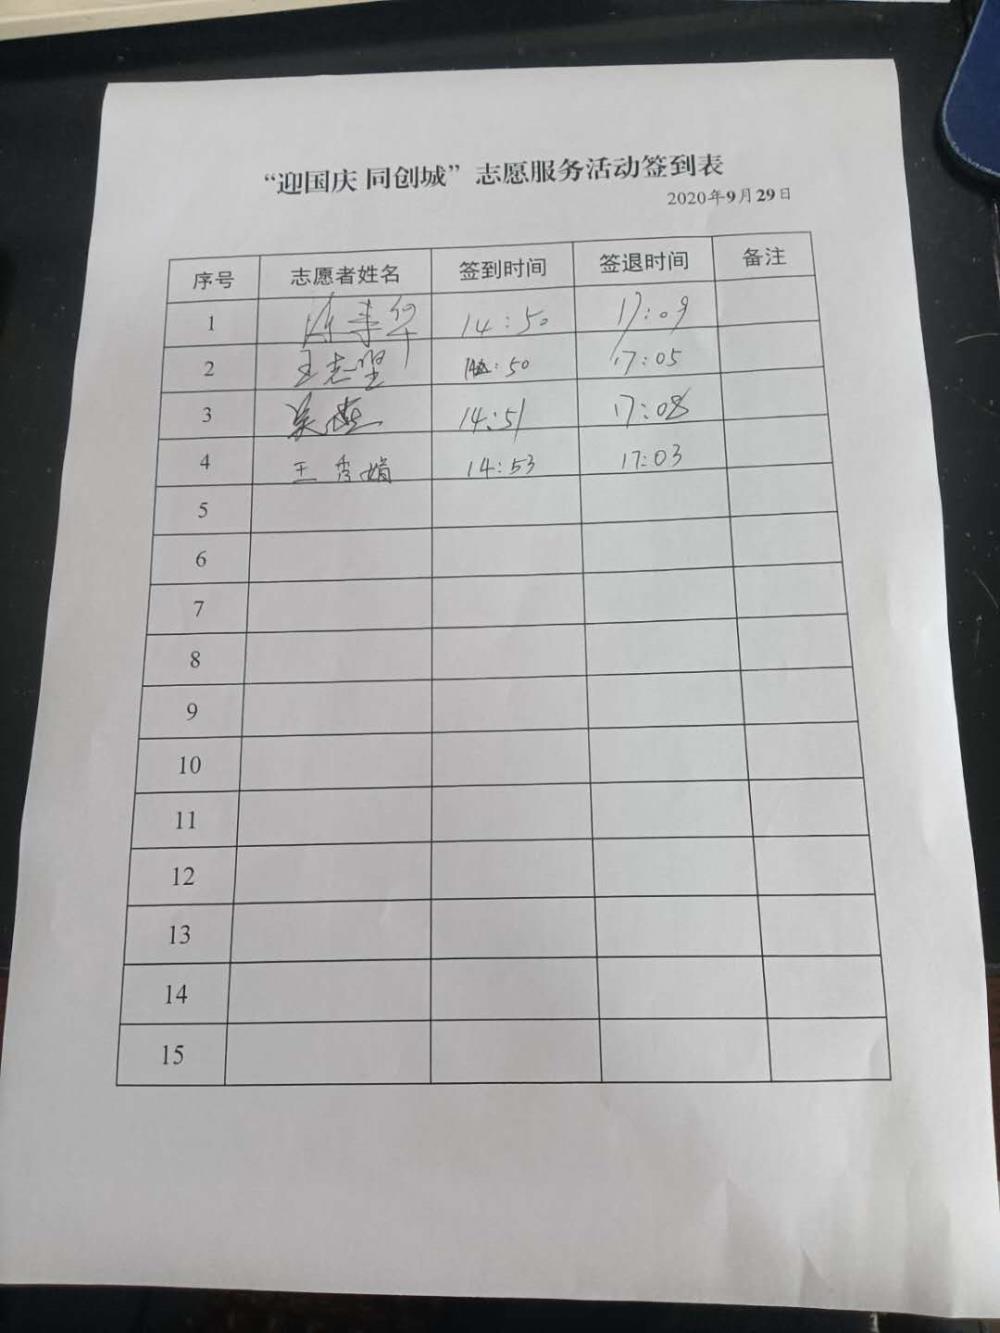 “迎国庆 同创城”志愿服务活动签到表
2020年9月29日
序号 志愿者姓名 签到时间 签退时间 备注
1 14:50 17:09
2 王志坚 14:50 17:05
3 吴 14:51 17:08
4 王秀娟 14:53 17:03
5
6
7
8
9
10
11
12
13
14
15